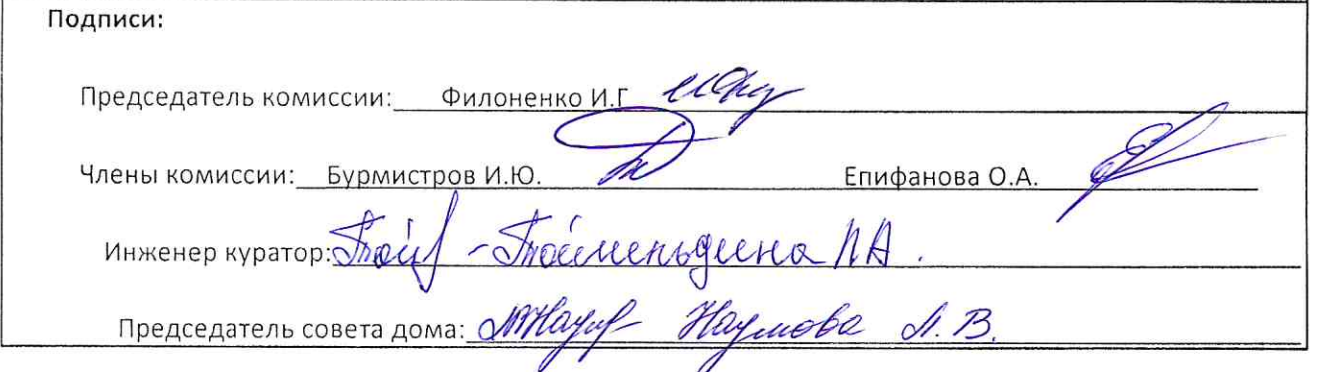 Подписи:
Председатель комиссии: Филоненко И.Г
Члены комиссии: Бурмистров И.Ю. Епифанова О.А.
Инженер куратор: - Тойменьдина ЛА.
Председатель совета дома: Наумова Л.В.